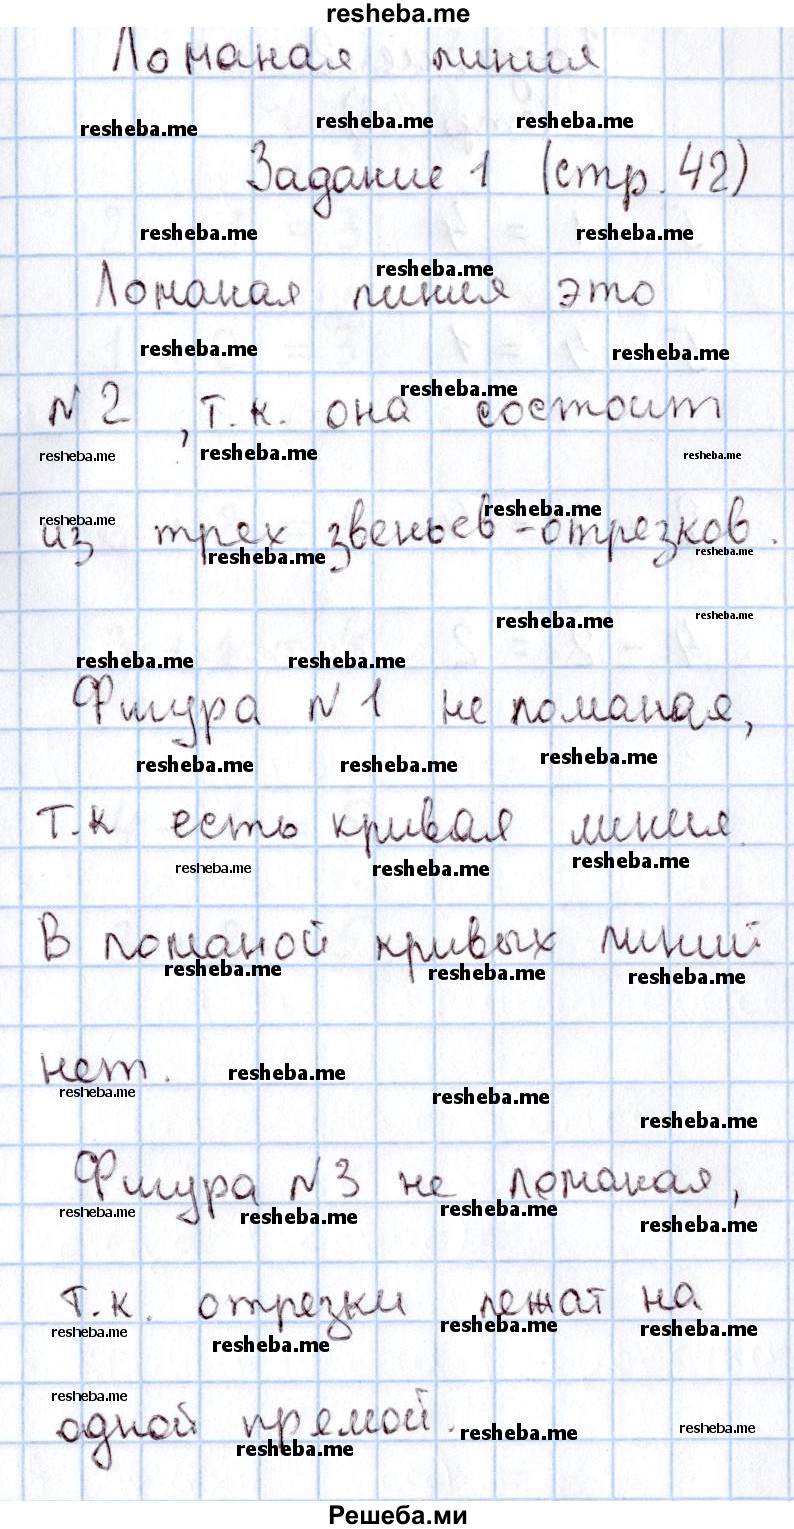 resheba.me
Ломаная линия
resheba.me resheba.me resheba.me
Задание 1 (стр. 42)
resheba.me resheba.me
resheba.me
Ломаная линия это
resheba.me resheba.me
resheba.me
N 2 , т.к. она состоит
resheba.me resheba.me resheba.me
resheba.me resheba.me
из трех звеньев-отрезков.
resheba.me resheba.me
resheba.me resheba.me
resheba.me resheba.me
Фигура N 1 не ломаная,
resheba.me resheba.me resheba.me
т.к есть кривая линия.
resheba.me resheba.me resheba.me
В ломаной кривых линий
resheba.me resheba.me resheba.me
нет.
resheba.me
resheba.me resheba.me
resheba.me
Фигура N 3 не ломаная,
resheba.me resheba.me resheba.me resheba.me
т.к. отрезки лежат на
resheba.me resheba.me resheba.me resheba.me
resheba.me
одной прямой.
resheba.me resheba.me resheba.me
Решеба.ми